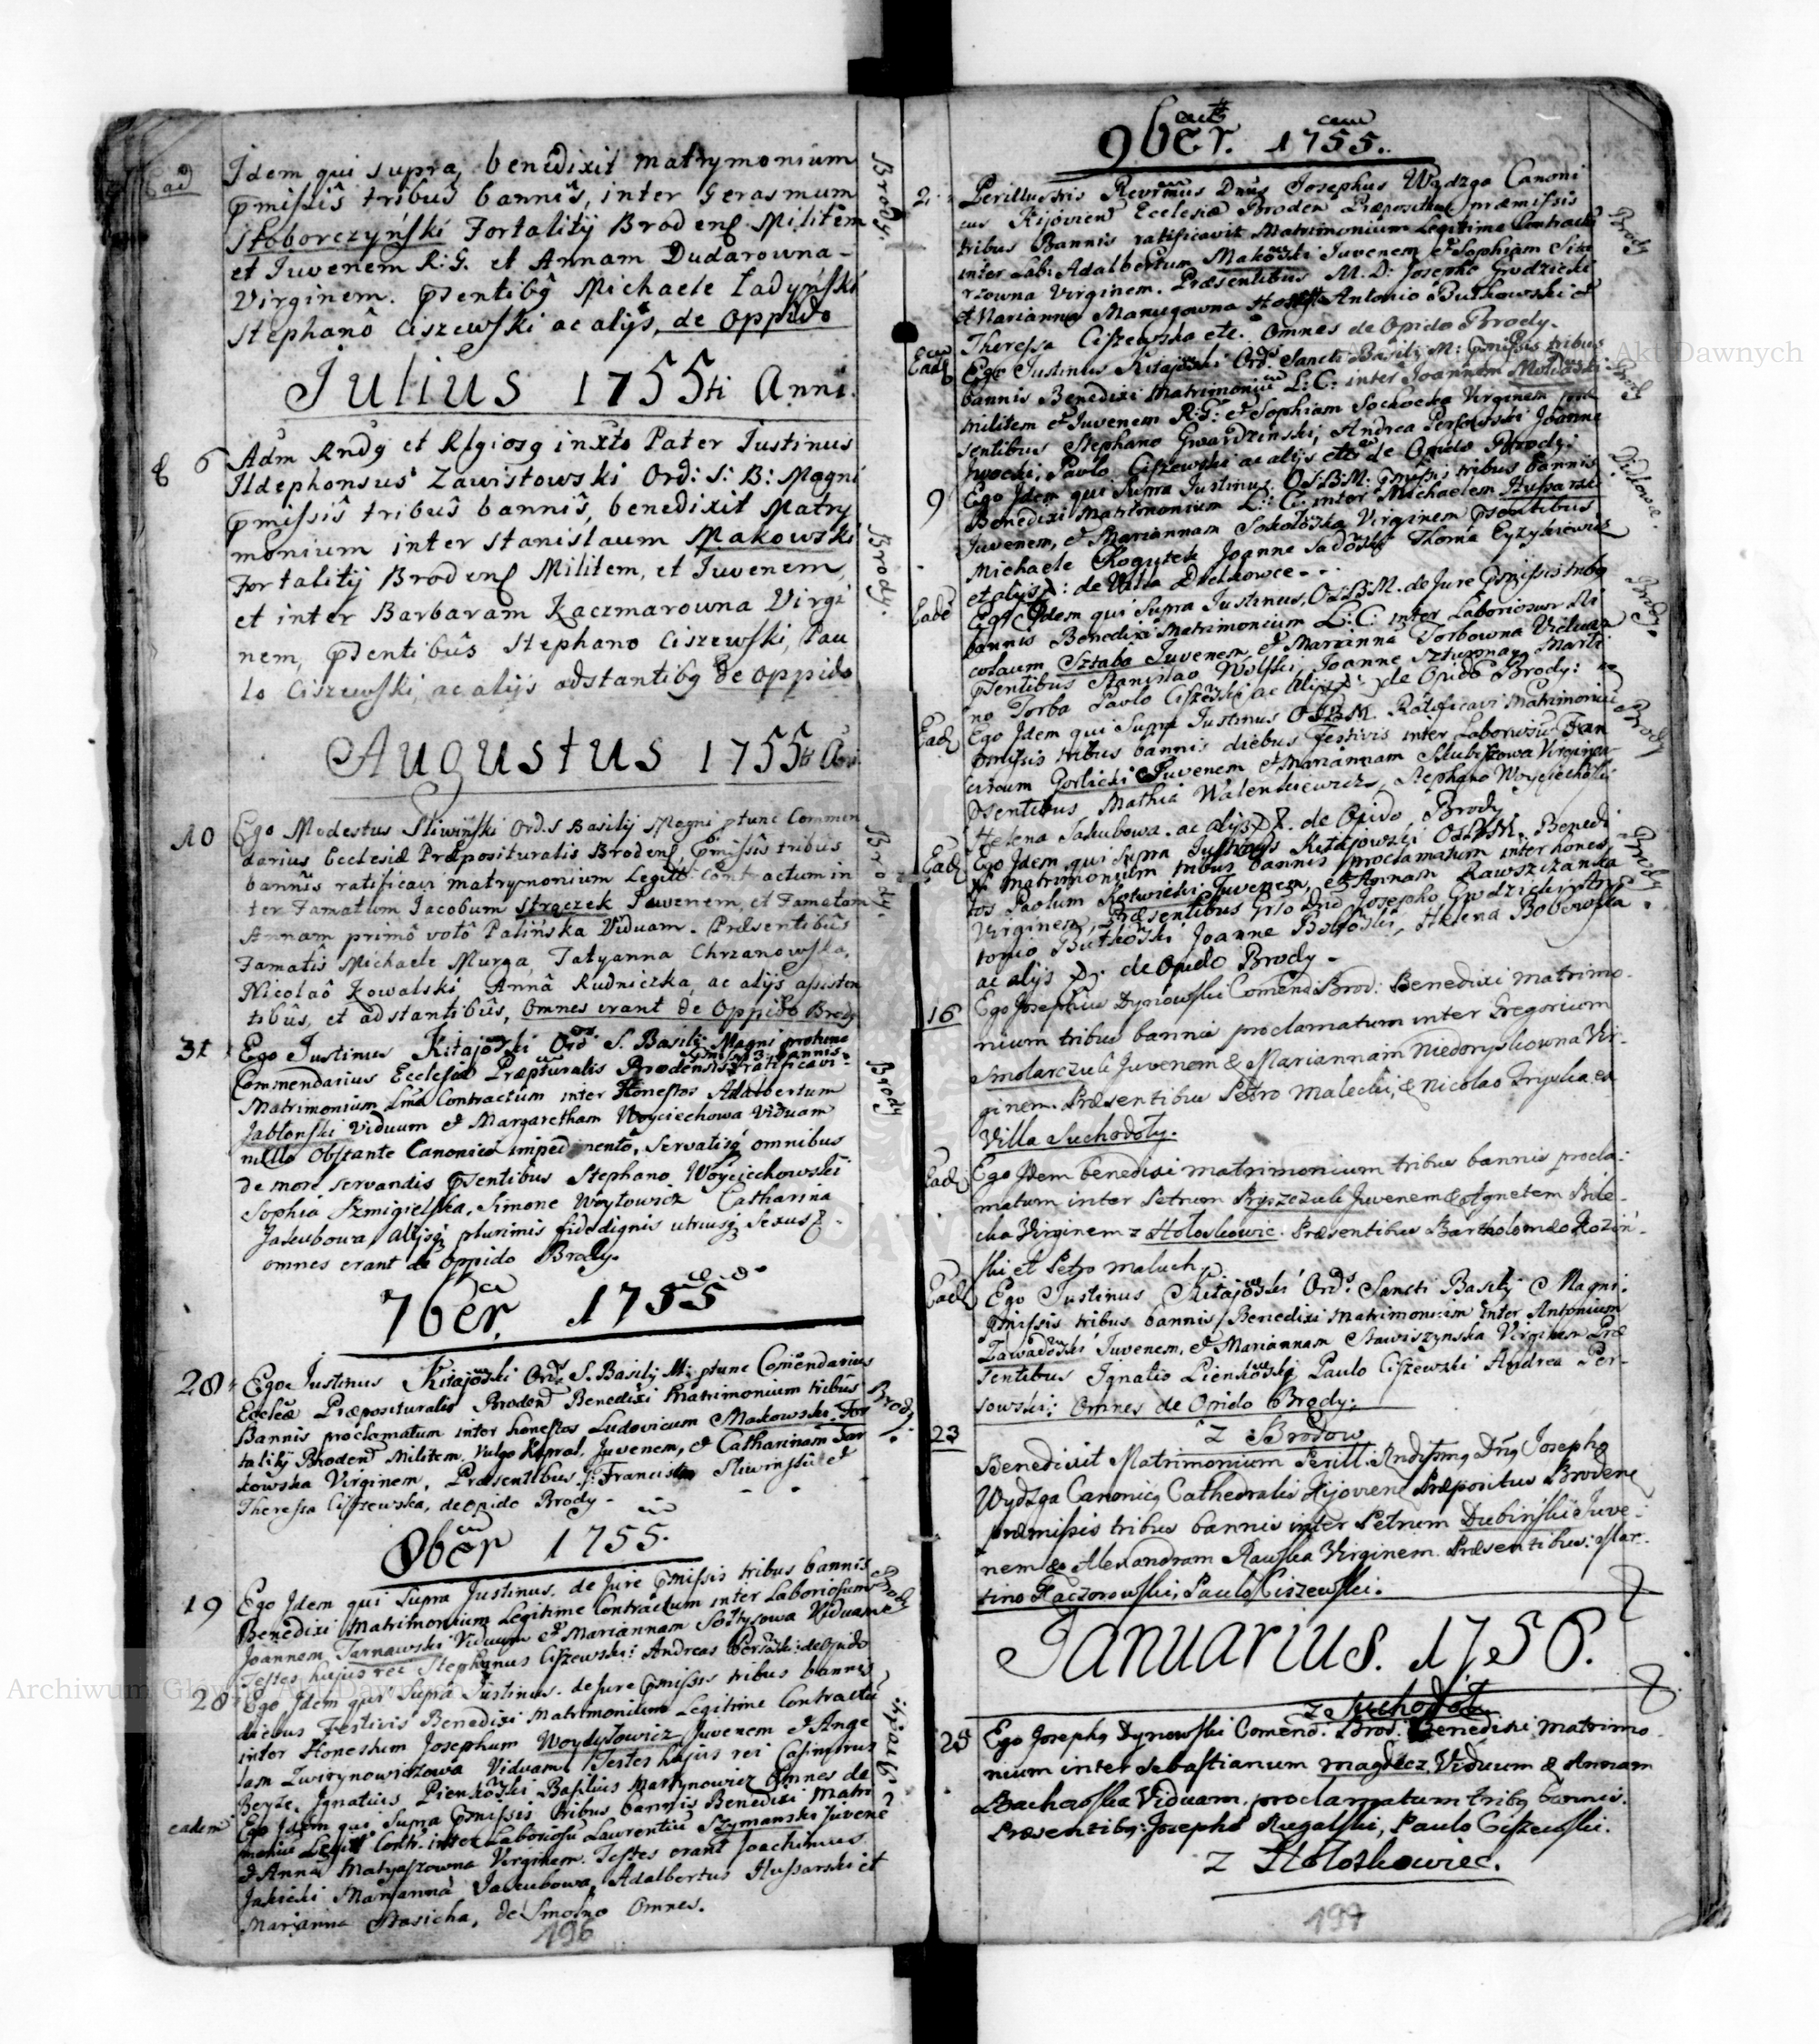 Ead
Idem qui supra, benedixit matrymonium
pmissis tribus bannis, inter Gerasmum
Stoborczyński Fortalitij Brodens Militem
et Iuvenem R: G. et Annam Dudarowna
Virginem. psentibq Michaele Ładyński
Stephano Ciszewski ac alijs, de Oppido
Brody.
Julius 1755ti Anni.
6
Adm Rndq et Rlgiosq in xto Pater Iustinus
Ildephonsus Zawistowski Ord: S: B: Magni
pmissis tribus bannis, benedixit Matry
monium inter Stanislaum Makowski
Fortalitij Brodens Militem, et Iuvenem,
et inter Barbaram Kaczmarowna Virgi
nem, psentibus Stephano Ciszewski, Pau
lo Ciszewski, ac alijs adstantibq de Oppido
Brody.
Augustus 1755ti Ani
10
Ego Modestus Sliwiński Ord. S Basilij Magni ptunc Commen
darius Ecclesiæ Præposituralis Brodens, pmissis tribus
bannis ratificavi matrymonium Legitt: Contractum in
ter Famatum Jacobum Strączek Iuvenem, et Famatam
Annam primo voto Palińska Viduam. Præsentibus
Famatis Michaele Murga, Tatyanna Chrzanowska,
Nicolao Kowalski Anna Rudniczka, ac alijs assisten
tibus, et adstantibus, Omnes erant de Oppido Brody
Brody.
31
Ego Iustinus Kitajowski Ord S. Basilij Magni protunc
Commendarius Ecclesiæ Præpturalis Brodensis pmis: 3 bannis ratificavi
Matrimonium Lme Contractum inter Honestos Adalbertum
Jabłonski Viduum et Margaretham Woyciechowa Viduam
nullo Obstante Canonico impedimento, Servatisq omnibus
de more servandis psentibus Stephano Woyciechowski
Sophia Szmigielska, Simone Woytowicz Catharina
Jakubowa Alijsq plurimis fide dignis utriusq Sexus
omnes erant de Oppido Brody.
Brody
7ber 1755
28
Ego Iustinus Kitajowski Ord: S. Basilij M: ptunc Comendarius
Eccleæ Præposituralis Broden Benedixi Matrimonium tribus
Bannis proclamatum inter honestos Ludovicum Makowski For
talitij Broden Militem, Vulgo Kapral, Juvenem, et Catharinam
kowska Virginem, Præsentibus Francisco Sliwinski et
Theressa Ciszewska, de Opido Brody
Brody.
8ber 1755.
19
Ego Idem qui Supra Justinus, de Jure pmissis tribus bannis
Benedixi Matrimonium Legitime Contractum inter Laboriosum
Joannem Tarnawski Viduum et Mariannam Sołtysowa Viduam
Testes hujus rei Stephanus Ciszewski: Andreas de Opido
Brody
28
Ego Idem qui Supra Iustinus. de Jure pmissis tribus bannis
diebus Festivis Benedixi Matrimonium Legitime Contractu
inter Honestum Josephum Woydyłowicz Juvenem et Ange
lam Zwirynowiczowa Viduam, Testes hujus rei Casimirus
Beyze, Ignatius Pienkowski Basilius Martynowicz Omnes de
eadem
Ego Idem qui Supra pmissis tribus bannis Benedixi Matri
monium Legitt Contr: inter Laboriosu Laurentiu Szymanski Juvene
et Anna Matyaszowna Virginem. Testes erant Joachimus
Jakicki Marianna Jakubowa, Adalbertus Hussarski et
Marianna Stasicha, de Smolno Omnes.
196
9ber. 1755.
2
Perillustris Revrmus Dnus Josephus Wydzga Canoni
cus Kijovien Ecclesiæ Broden Præpositus præmissis
tribus Bannis ratificavit Matrimonium Legitime Contractu
inter Lab: Adalbertum Makowski Juvenem et Sophiam Siko
rzowna Virginem. Præsentibus M. D: Josepho Grodzicki
et Marianna Antonio Butkowski et
Theressa Ciszewska etc. Omnes de Opido Brody.
Brody
Eade
Ego Iustinus Kitajowski Ord. Sancti Basilij M: pmissis tribus
bannis Benedixi Matrimoniu L: C: inter Joannem
Militem et Juvenem R: G: et Sophiam Sochocka Virginem præ
sentibus Stephano Gwardzinski, Andrea Persowski Joanne
Jwocki, Pavlo Ciszewski ac alijs etc de Opido Brody.
Brody
9
Ego Idem qui Supra Justinus, O:S:B:M: pmissis tribus bannis
Benedixi Matrimonium L: C: inter Michaelem Hussarski
Juvenem, et Mariannam Sokołowska Virginem psentibus
Michaele Rogutek Joanne Sadowski Thoma Eyzykiewicz
et alijs: de Villa
Eade
Ego Idem qui Supra Justinus, O:S:B:M. de Jure pmissis tribq
bannis Benedixi Matrimonium L: C: inter Laboriosu Ni
colaum Sztaba Juvenem et Marianna Torbowna Viduam
psentibus Stanislao Wolski, Joanne Marti
no Torba Pavlo Ciszewski ac Alijs de Opido Brody:
Brody.
Eade
Ego Idem qui Supra Justinus O:S:B:M. Ratificavi Matrimoniu
pmissis tribus bannis diebus festivis inter Laboriosu Fran
ciscum Gorlicki Juvenem et Mariannam Virginem
psentibus Mathia Walenkiewicz, Stephano Woyciechowski
Helena Jakubowa. ac alijs. de Opido Brody
Brody
Eade
Ego Idem qui Supra Justinus Kitajowski O:S:B:M. Benedi
xi Matrimonium tribus bannis proclamatum inter hones
tos Paolum Kotwicki Juvenem, et Annam Rawszczanka
Virginem, Præsentibus Grso Dno Josepho Grodzicki An
tonio Butkowski Joanne, Helena Bobowska
ac alijs de Opido Brody
Brody.
16
Ego Josephus Dynowski Comend: Brod: Benedixi matrimo
nium tribus bannis proclamatum inter Gregorium
Smolarczuk Juvenem & Mariannam Niedoryskowna Vir
ginem. Præsentibus Petro Malecki, & Nicolao Fryska ex
Villa Suchodoły.
Eade
Ego Idem benedixi matrimonium tribus bannis procla:
matum inter Petrum Juvenem & Agnetem Bile
cka Virginem z Hołoskowic. Præsentibus Bartholomæo Koziń
ski et Petro maluch.
Eade
Ego Iustinus Kitajowski Ord: Sancti Basilij Magni:
pmissis tribus bannis Benedixi Matrimonium inter Antonium
Zawadowski Juvenem, et Mariannam Stawiszynska Virginem Præ
sentibus Ignatio Pienkowski, Paulo Ciszewski Andrea Per
sowski: Omnes de Opido Brody:
23
z Brodow
Benedixit Matrimonium Perill: Rndissmq Dnq Josephq
Wydzga Canonicq Cathedralis Kijovien Præpositus Brodens
præmissis tribus bannis inter Petrum Dubiński Juve
nem & Alexandram Rawska Virginem. Præsentibus: Mar
tino Kaczorowski, Paulo Ciszewski.
Januarius. 1756.
z Suchodoł
25
Ego Josephq Dynowski Comend: Brod: Benedixi matrimo
nium inter Sebastianum Viduum & Annam
Viduam, proclamatum tribq bannis.
Præsentibq: Josepho Rugalski, Paulo Ciszewski.
z Hołoskowiec.
197
Archiwum Główne Akt Dawnych
Akt Dawnych